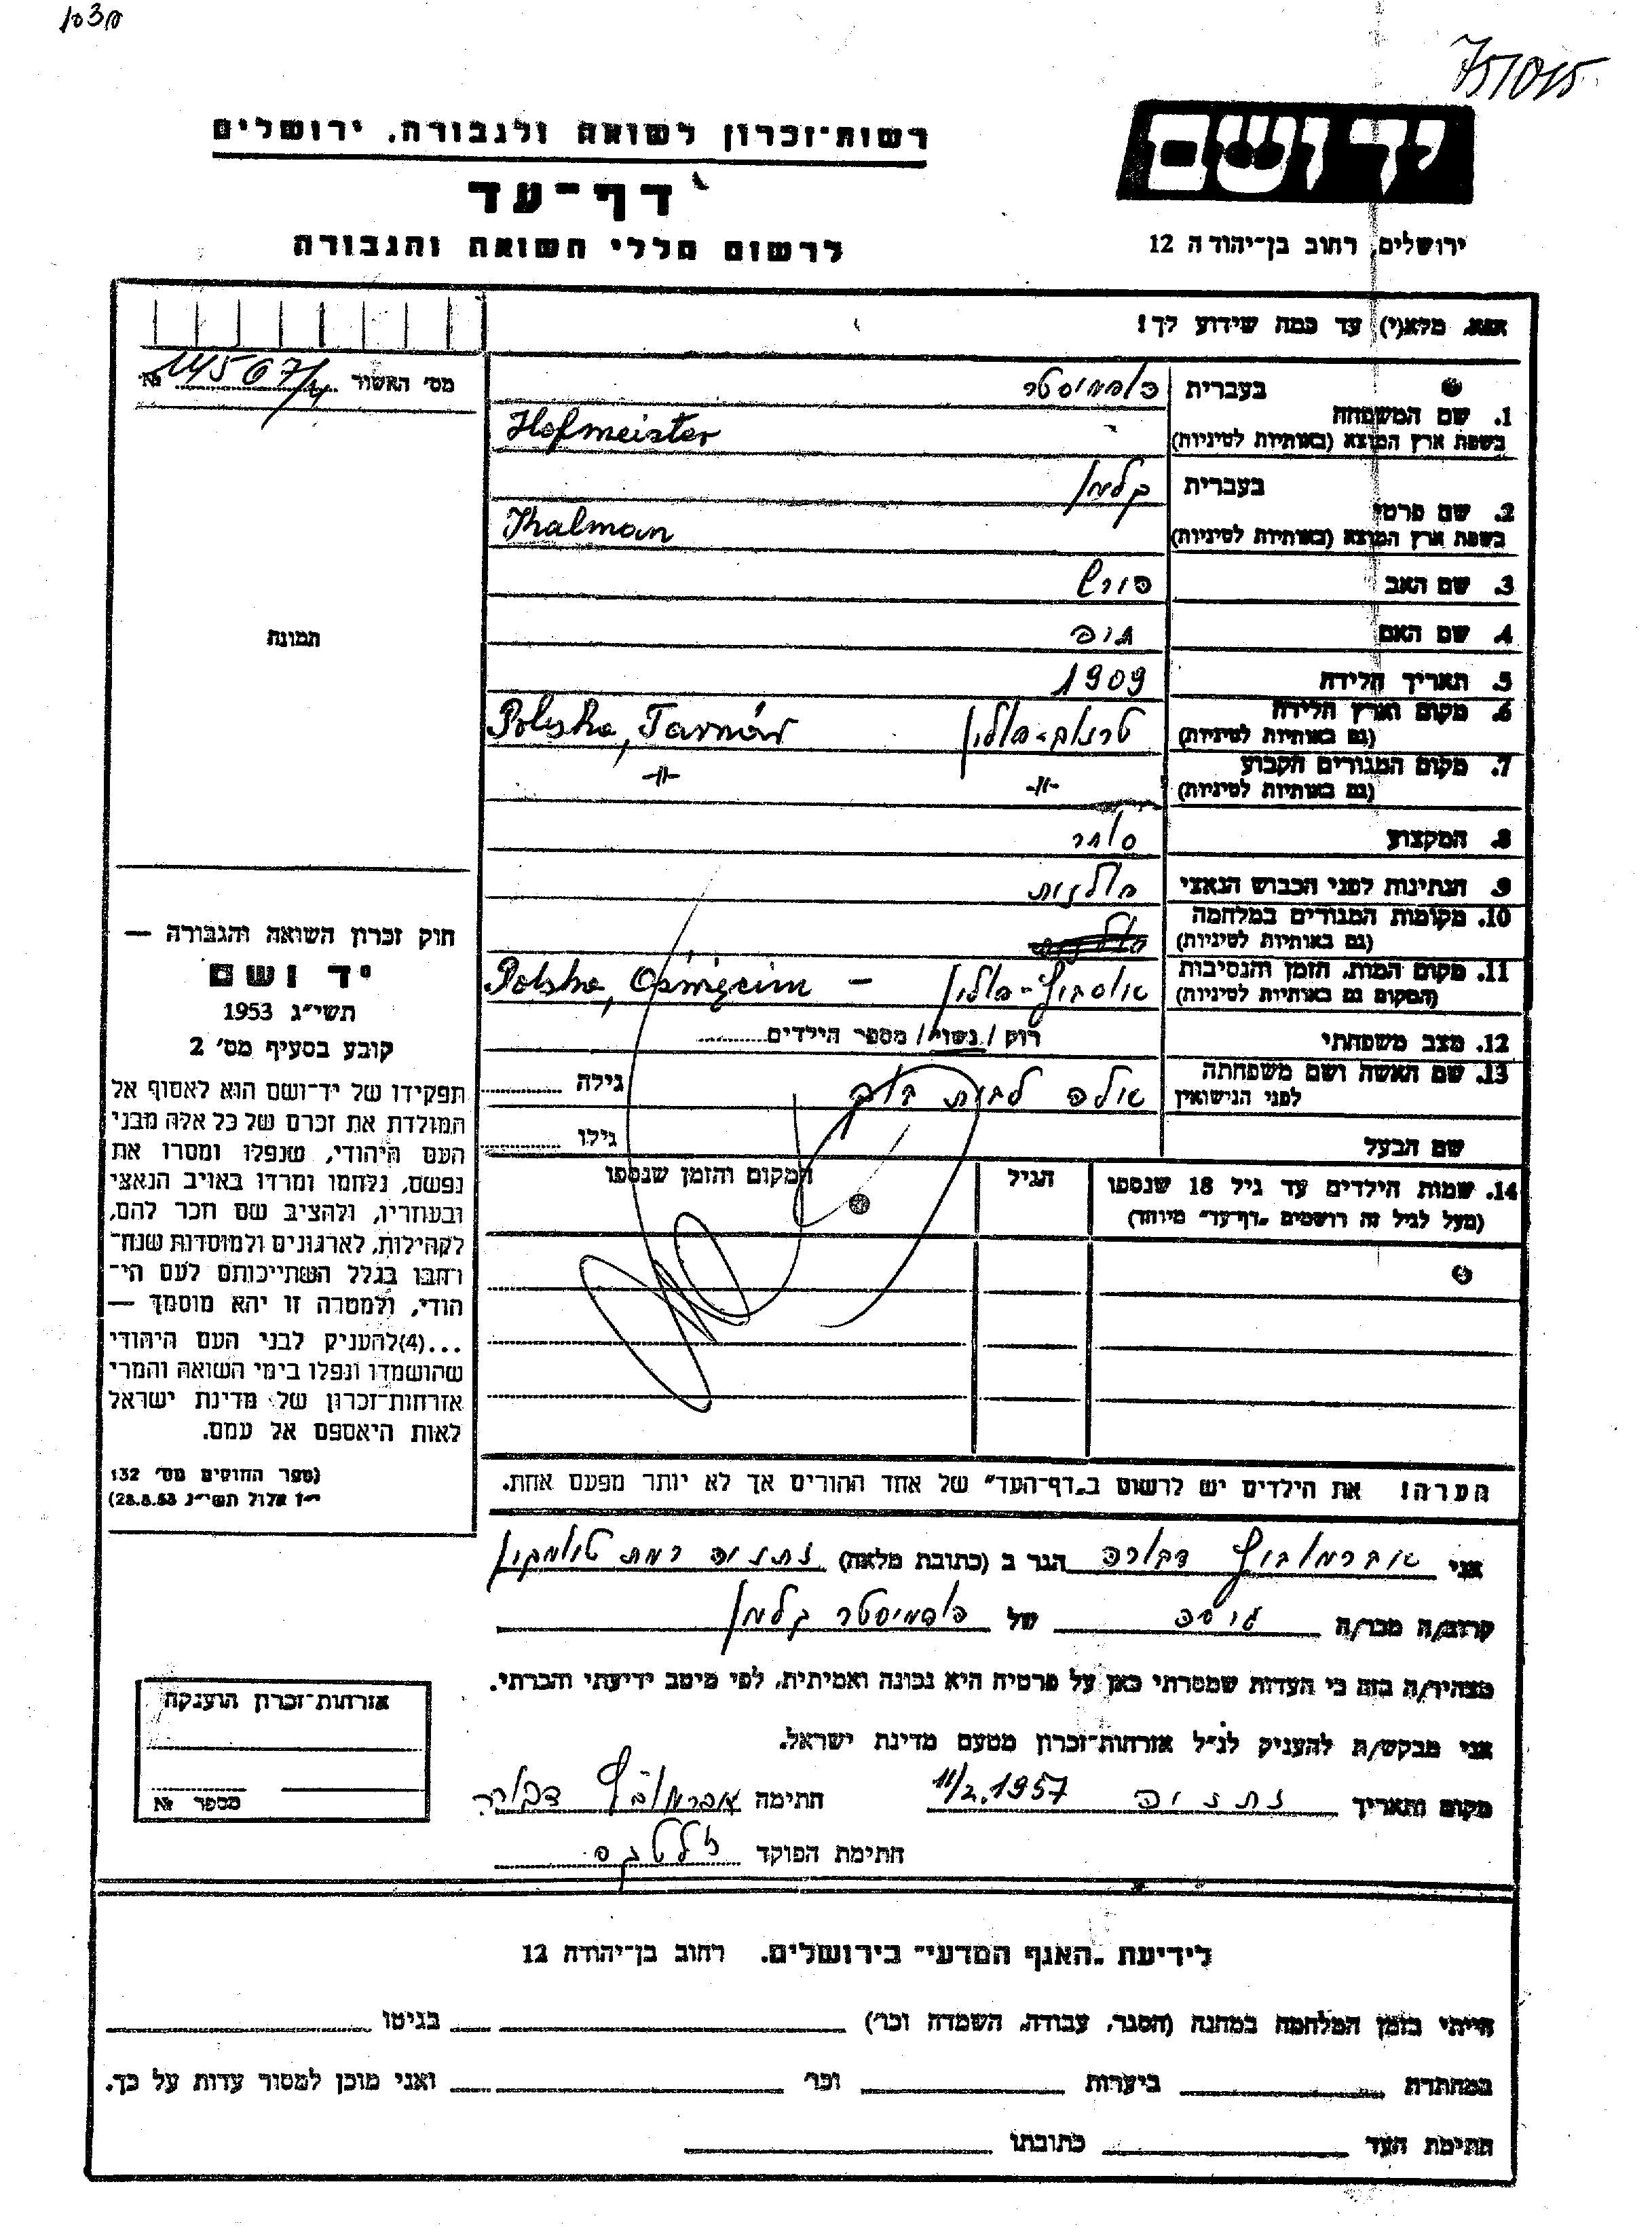 751015
רשות־זכרון לשואה ולגבורה, ירושלים
יד ושם
דף־עד
לרשום חללי השואה והגבורה
ירושלים, רחוב בן־יהודה 12
אנא, מלא(י) עד כמה שידוע לך!
מס' האשור № 14507/4
1. שם המשפחה
בעברית הופמיסטר
בשפת ארץ המוצא (באותיות לטיניות) Hofmeister
2. שם פרטי
בעברית קלמן
בשפת ארץ המוצא (באותיות לטיניות) Kalman
3. שם האב
4. שם האם
5. תאריך הלידה 1909
6. מקום וארץ הלידה
(גם באותיות לטיניות) טרנוב-פולין Polska, Tarnów
7. מקום המגורים הקבוע
(גם באותיות לטיניות) -"- -"-
8. המקצוע סוחר
9. הנתינות לפני הכבוש הנאצי פולנית
10. מקומות המגורים במלחמה
(גם באותיות לטיניות)
11. מקום המות, הזמן והנסיבות
(המקום גם באותיות לטיניות) אוסביץ-פולין – Polska, Oświęcim
12. מצב משפחתי רווק / נשוי / מספר הילדים
13. שם האשה ושם משפחתה
לפני הנישואין לבית גילה
שם הבעל גילו
14. שמות הילדים עד גיל 18 שנספו
(מעל לגיל זה רושמים „דף־עד" מיוחד)
הגיל
המקום והזמן שנספו
הערה! את הילדים יש לרשום ב„דף־העד" של אחד ההורים אך לא יותר מפעם אחת.
תמונה
חוק זכרון השואה והגבורה —
יד ושם
תשי"ג 1953
קובע בסעיף מס' 2
תפקידו של יד־ושם הוא לאסוף אל
המולדת את זכרם של כל אלה מבני
העם היהודי, שנפלו ומסרו את
נפשם, נלחמו ומרדו באויב הנאצי
ובעוזריו, ולהציב שם וזכר להם,
לקהילות, לארגונים ולמוסדות שנח־
רחבו בגלל השתייכותם לעם הי־
הודי, ולמטרה זו יהא מוסמך —
...(4)להעניק לבני העם היהודי
שהושמדו ונפלו בימי השואה והמרי
אזרחות־זכרון של מדינת ישראל
לאות היאספם אל עמם.
(ספר החוקים מס' 132
י"ז אלול תשי"ג 28.8.53)
אני אברמוביץ דבורה הגר ב (כתובת מלאה) נתניה רמת
קרוב/ה מכר/ה גיסה של הופמיסטר קלמן
מצהיר/ה בזה כי העדות שמסרתי כאן על פרטיה היא נכונה ואמיתית, לפי מיטב ידיעתי והכרתי.
אני מבקש/ת להעניק לנ"ל אזרחות־זכרון מטעם מדינת ישראל.
מקום ותאריך נתניה 11/2.1957 חתימה אברמוביץ דבורה
חתימת הפוקד
אזרחות־זכרון הוענקה
מספר №
לידיעת „האגף המדעי" בירושלים, רחוב בן־יהודה 12
הייתי בזמן המלחמה במחנה (הסגר, עבודה, השמדה וכו') בגיטו
במחתרת ביערות וכו' ואני מוכן למסור עדות על כך.
חתימת העד כתובתו